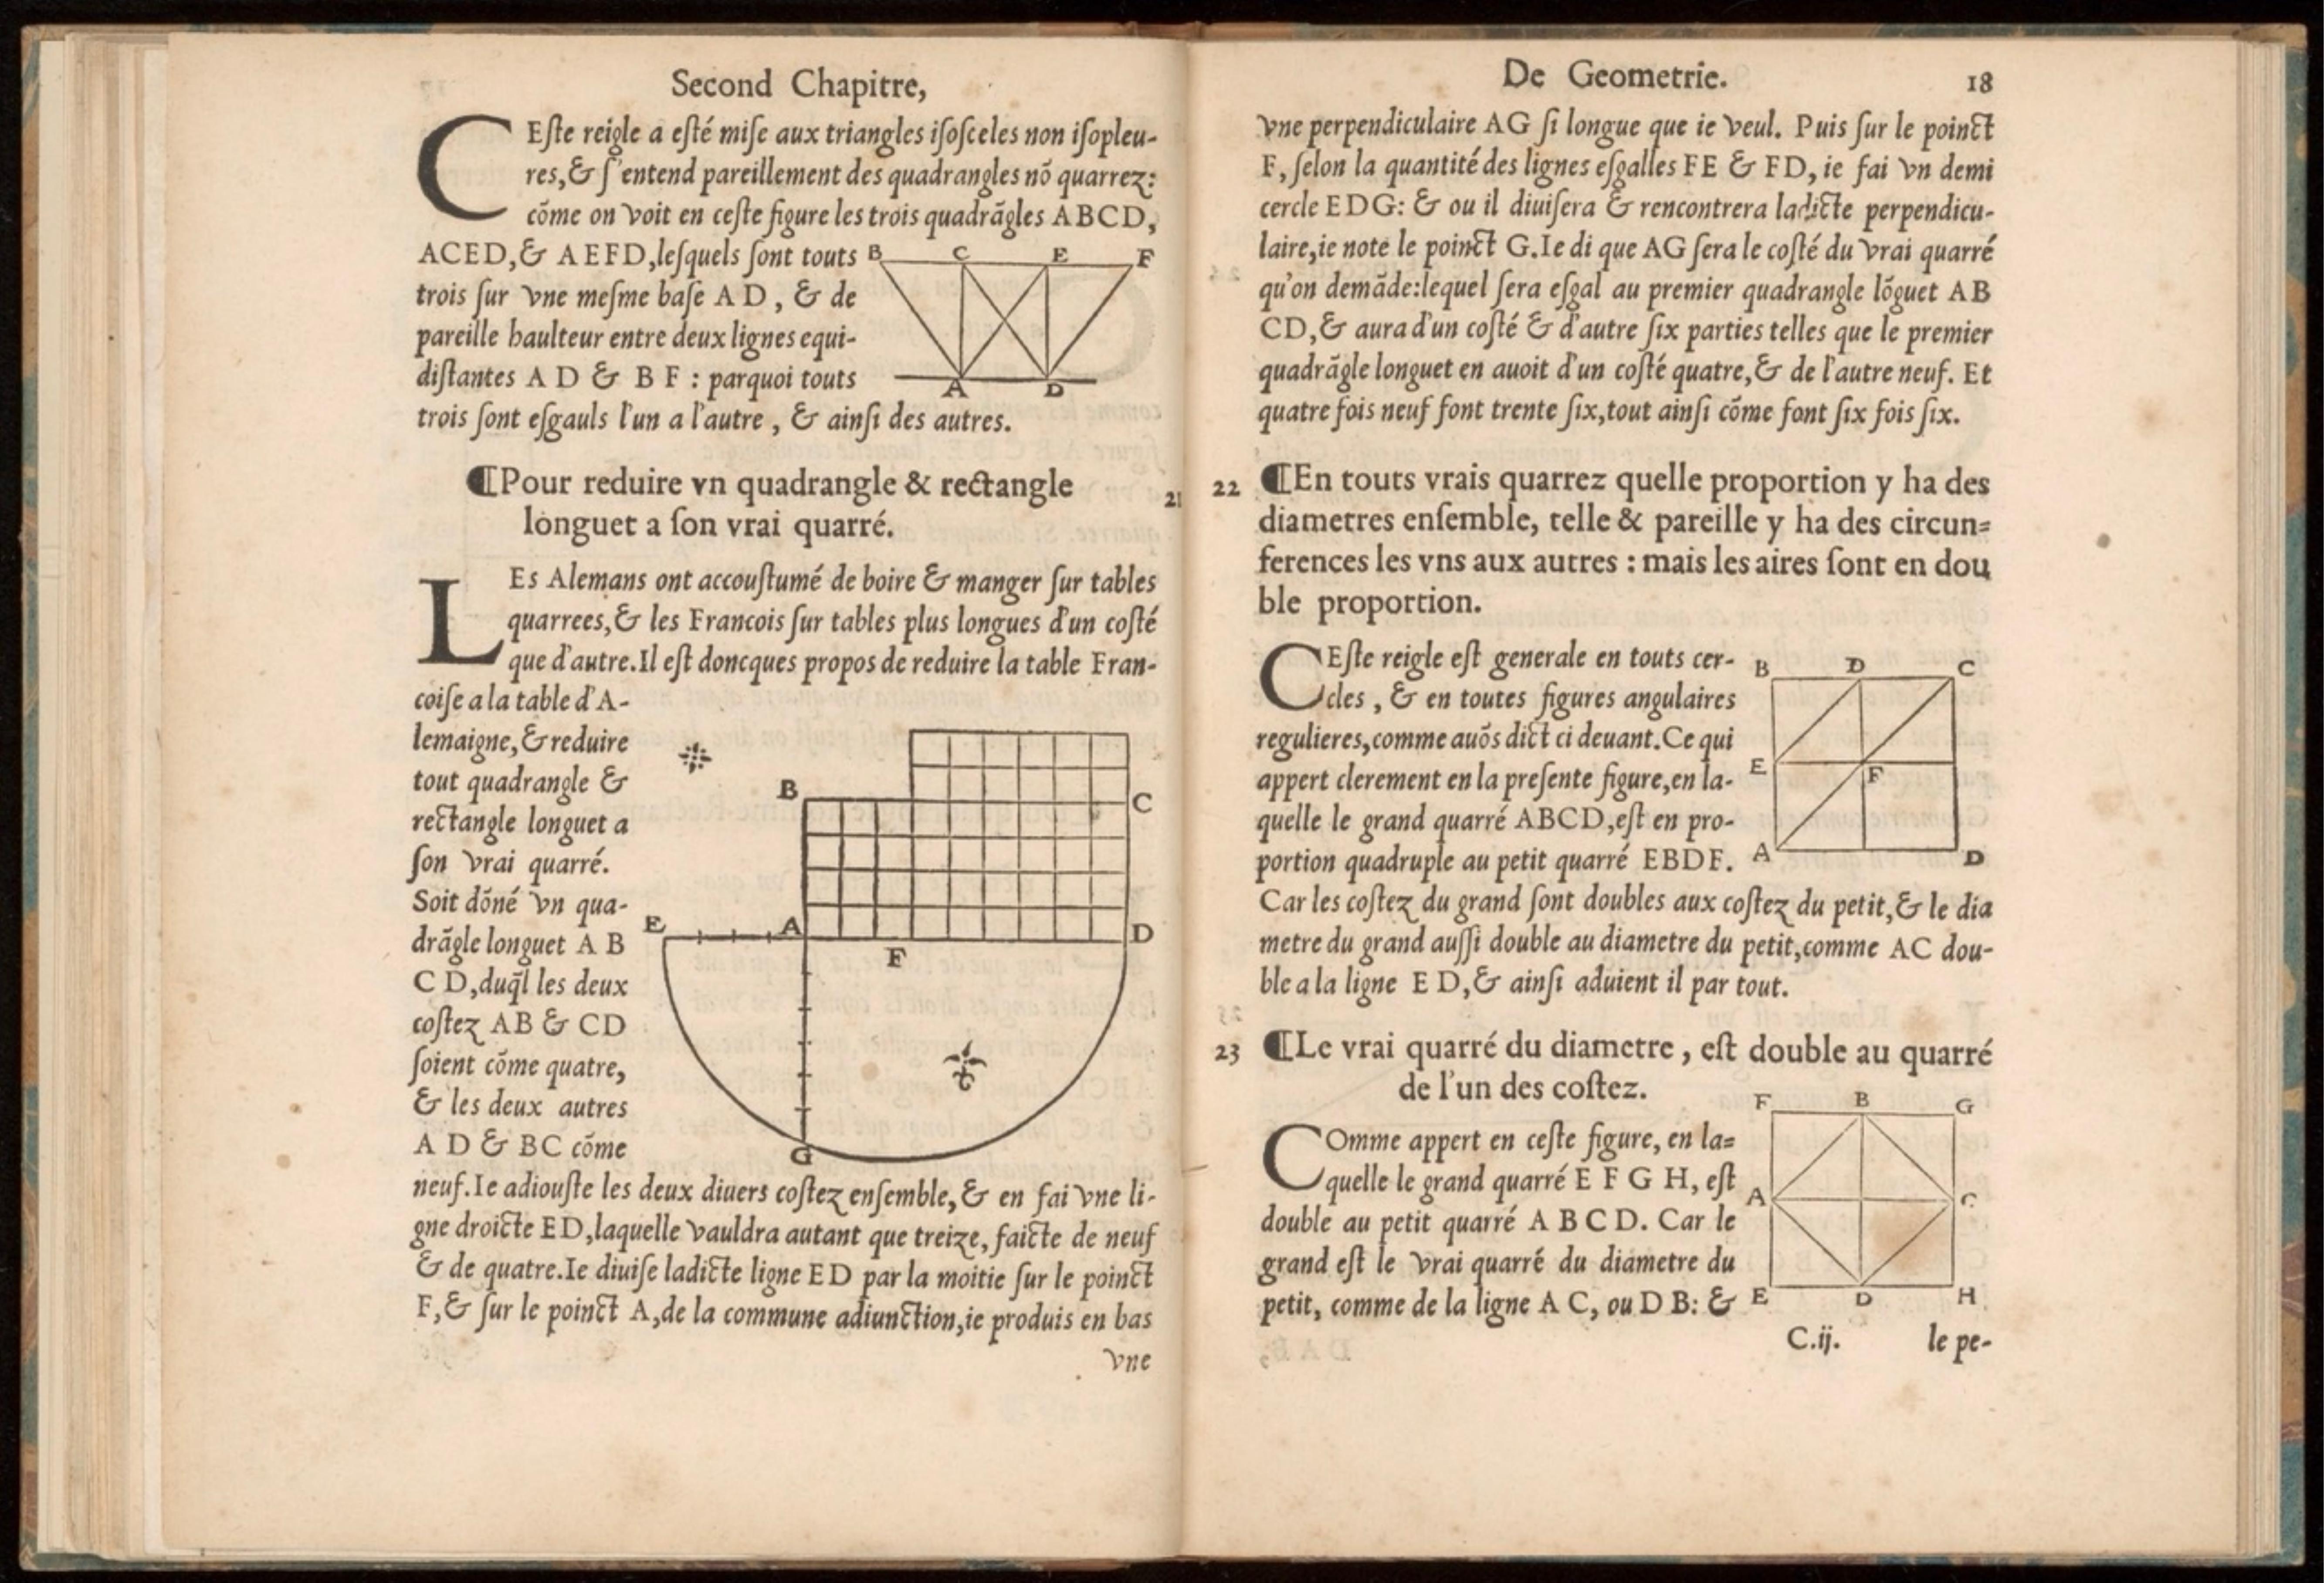 Second Chapitre,
CEſte reigle a eſté miſe aux triangles iſoſceles non iſopleu-
res,& ſ'entend pareillement des quadrangles nō quarrez:
cōme on voit en ceſte figure les trois quadrāgles ABCD,
ACED,& AEFD,leſquels ſont touts
trois ſur vne meſme baſe A D, & de
pareille haulteur entre deux lignes equi-
diſtantes A D & B F : parquoi touts
trois ſont eſgauls l'un a l'autre, & ainſi des autres.
B C E F
A D
¶Pour reduire vn quadrangle & rectangle
longuet a ſon vrai quarré.
21
LEs Alemans ont accouſtumé de boire & manger ſur tables
quarrees,& les Francois ſur tables plus longues d'un coſté
que d'autre.Il eſt doncques propos de reduire la table Fran-
coiſe a la table d'A-
lemaigne,& reduire
tout quadrangle &
rectangle longuet a
ſon vrai quarré.
Soit dōné vn qua-
drāgle longuet A B
C D,duq̄l les deux
coſtez AB & CD
ſoient cōme quatre,
& les deux autres
A D & BC cōme
B C
E A F D
G
neuf.Ie adiouſte les deux diuers coſtez enſemble,& en fai vne li-
gne droicte ED,laquelle vauldra autant que treize, faicte de neuf
& de quatre.Ie diuiſe ladicte ligne ED par la moitie ſur le poinct
F,& ſur le poinct A,de la commune adiunction,ie produis en bas
vne
De Geometrie. 18
vne perpendiculaire AG ſi longue que ie veul. Puis ſur le poinct
F, ſelon la quantité des lignes eſgalles FE & FD, ie fai vn demi
cercle EDG: & ou il diuiſera & rencontrera ladicte perpendicu-
laire,ie note le poinct G.Ie di que AG ſera le coſté du vrai quarré
qu'on demāde:lequel ſera eſgal au premier quadrangle lōguet AB
CD,& aura d'un coſté & d'autre ſix parties telles que le premier
quadrāgle longuet en auoit d'un coſté quatre,& de l'autre neuf. Et
quatre fois neuf font trente ſix,tout ainſi cōme font ſix fois ſix.
22 ¶En touts vrais quarrez quelle proportion y ha des
diametres enſemble, telle & pareille y ha des circun=
ferences les vns aux autres : mais les aires ſont en dou
ble proportion.
CEſte reigle eſt generale en touts cer-
cles, & en toutes figures angulaires
regulieres,comme auōs dict ci deuant.Ce qui
appert clerement en la preſente figure,en la-
quelle le grand quarré ABCD,eſt en pro-
portion quadruple au petit quarré EBDF.
B D C
E F
A D
Car les coſtez du grand ſont doubles aux coſtez du petit,& le dia
metre du grand auſſi double au diametre du petit,comme AC dou-
ble a la ligne E D,& ainſi aduient il par tout.
23 ¶Le vrai quarré du diametre, eſt double au quarré
de l'un des coſtez.
COmme appert en ceſte figure, en la=
quelle le grand quarré E F G H, eſt
double au petit quarré A B C D. Car le
grand eſt le vrai quarré du diametre du
petit, comme de la ligne A C, ou D B: &
F B G
A C
E D H
C.ij. le pe-